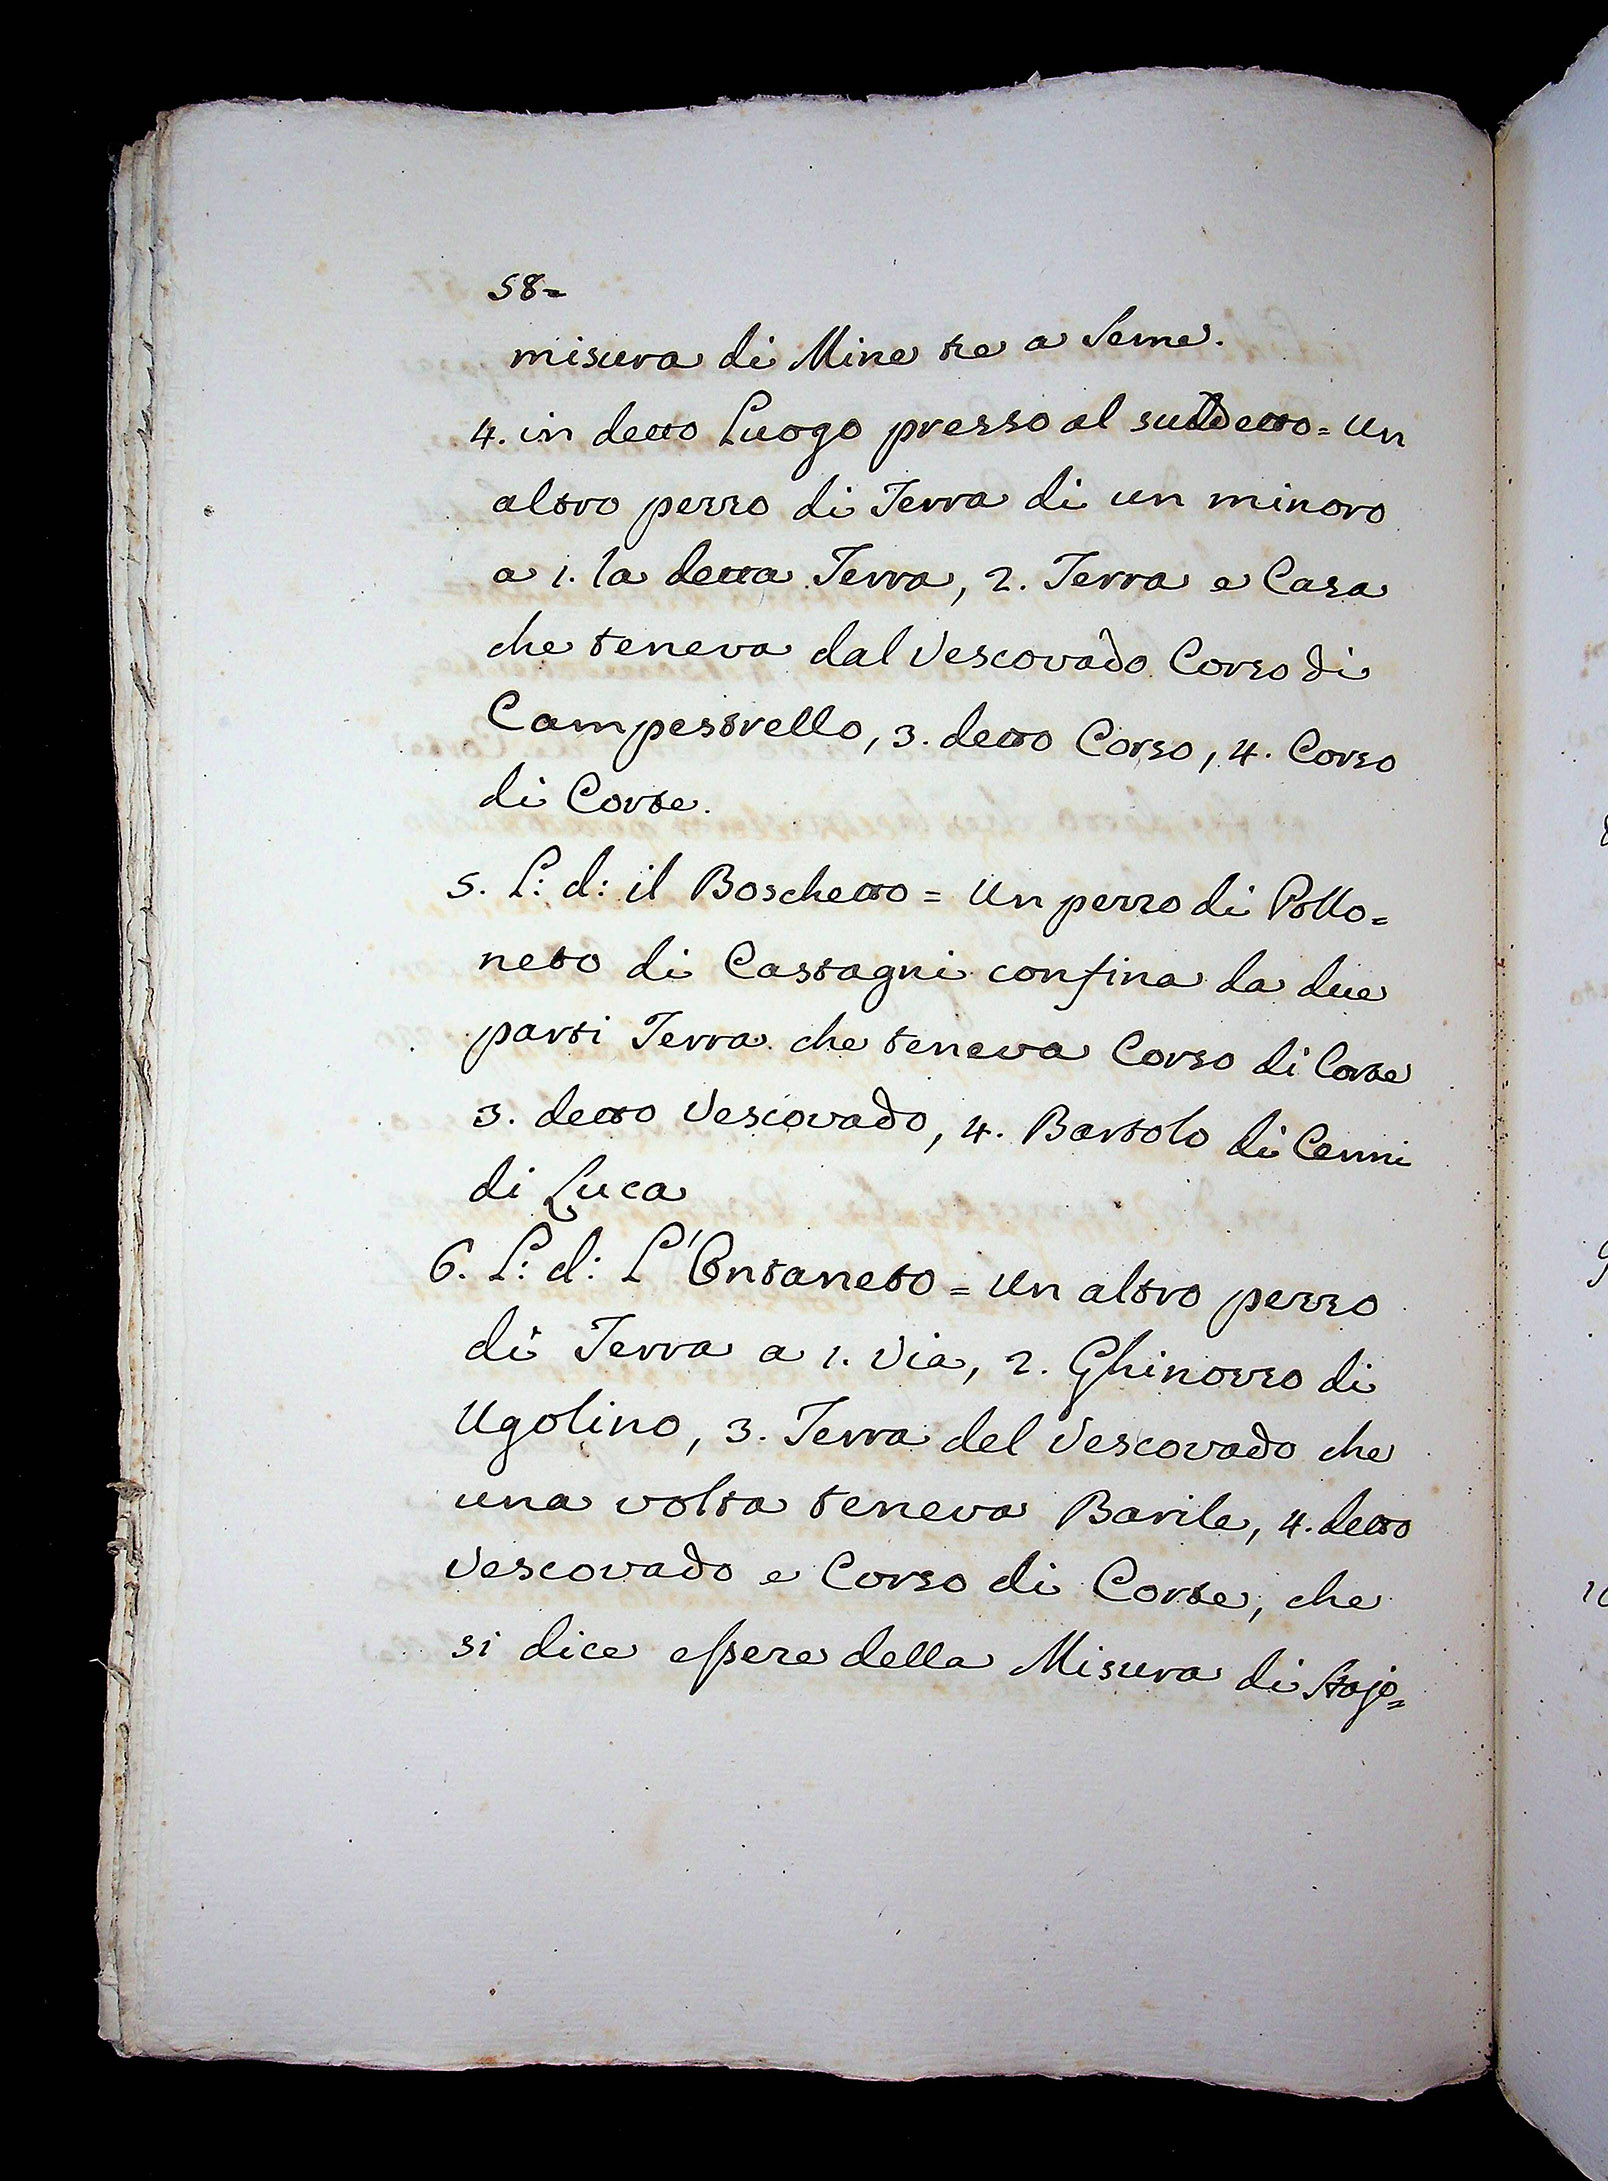 58=
misura di Mine tre a Seme.
4. in detto Luogo presso al suddetto = Un
altro pezzo di Terra di un minoro
a 1. la detta Terra, 2. Terra e Casa
che teneva dal Vescovado Corso di
Campestrello, 3. detto Corso, 4. Corso
di Corte.
5. L: d: il Boschetto = Un pezzo di Pollo=
neto di Castagni confina da due
parti Terra che teneva Corso di Corte
3. detto Vescovado, 4. Bartolo di Cenni
di Luca
6. L: d: L'Ontaneto = Un altro pezzo
di Terra a 1. Via, 2. Ghinozzo di
Ugolino, 3. Terra del Vescovado che
una volta teneva Barile, 4. detto
Vescovado e Corso di Corte, che
si dice essere della Misura di Stajo=